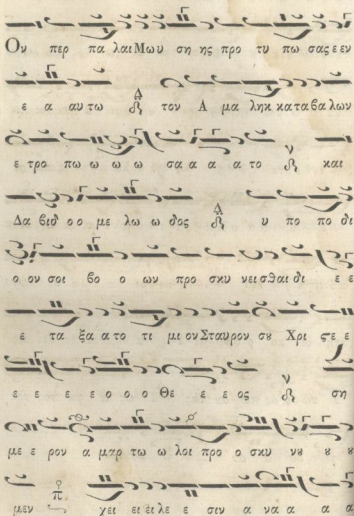 Ον περ πα λαι Μωυ ση ης προ τυ πω σας ε εν
ε α αυ τω τον Α μα ληκ κα τα βα λων
ε τρο πω ω ω ω σα α α α το και
Δα βιδ ο ο με λω ω δος υ πο πο δι
ο ον σοι βο ο ων προ σκυ νεισθαι δι ε ε
ε τα ξα α το τι μι ον Σταυρον σου Χρι ςε ε
ε ε ε ε ο ο ο Θε ε ε ος ση
με ε ρον α μαρ τω ω λοι προ ο σκυ νου ου ου
μεν χει ει ει λε ε σιν α να α α α